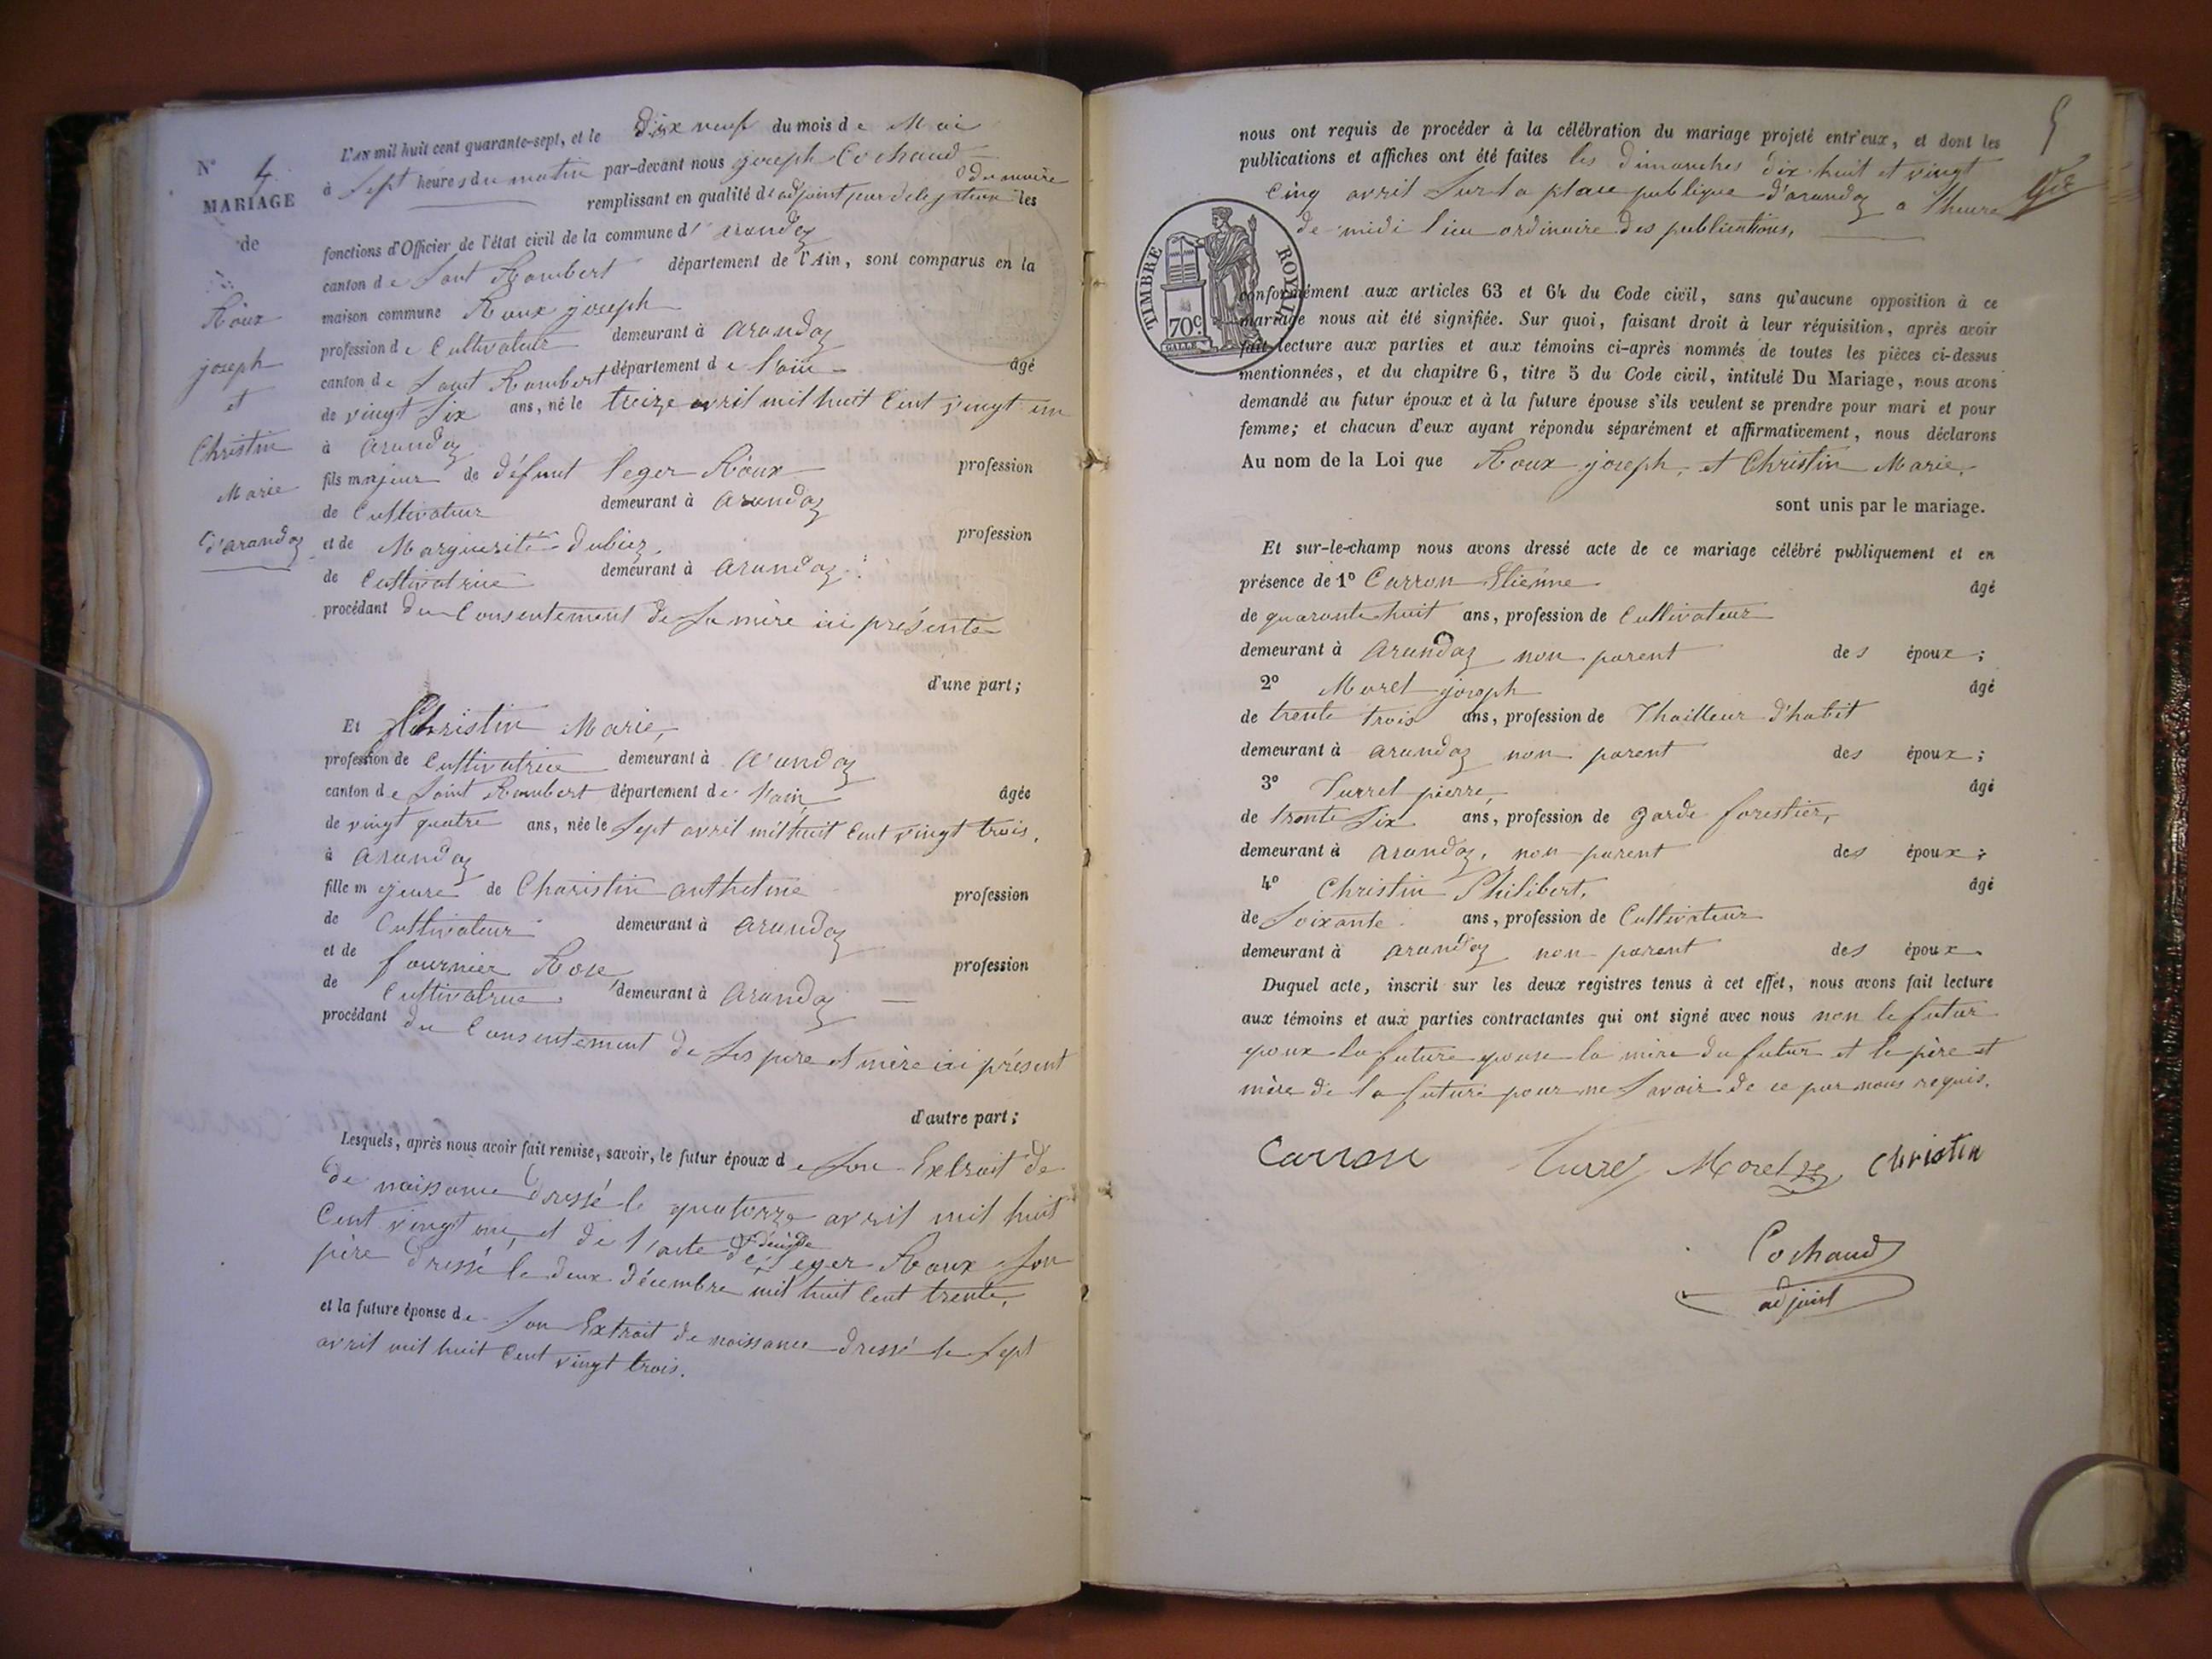 N° 4
MARIAGE
de
Roux
joseph
et
Christin
Marie
d'arandaz
L'an mil huit cent quarante-sept, et le dix neuf du mois de Mai
à Sept heures du matin par-devant nous joseph Cochaud
remplissant en qualité de adjoint par delegation du maire les
fonctions d'Officier de l'état civil de la commune d'arandaz
canton de Saint Rambert département de l'Ain, sont comparus en la
maison commune Roux joseph
profession de Cultivateur demeurant à arandaz
canton de Saint Rambert département de l'ain âgé
de vingt Six ans, né le treize avril mil huit Cent vingt un
à arandaz
fils majeur de défunt leger Roux profession
de Cultivateur demeurant à arandaz
et de Marguerite dubiez profession
de Cultivatrice demeurant à arandaz
procédant du Consentement de Sa mère ici présente
d'une part;
Et Christin Marie,
profession de Cultivatrice demeurant à arandaz
canton de Saint Rambert département de l'ain âgée
de vingt quatre ans, née le Sept avril mil huit Cent vingt trois,
à arandaz
fille majeure de Charistin anthelme profession
de Cultivateur demeurant à arandaz
et de fournier Rose profession
de Cultivatrice demeurant à arandaz
procédant du Consentement de Ses pere et mère ici présent
d'autre part;
Lesquels, après nous avoir fait remise, savoir, le futur époux de Son Extrait de
de naissance dressé le quatorze avril mil huit
Cent vingt une, et de l'acte de décès de Leger Roux Son
père dressé le deux décembre mil huit Cent trente,
et la future épouse de Son Extrait de naissance dressé le Sept
avril mil huit Cent vingt trois.
5
nous ont requis de procéder à la célébration du mariage projeté entr'eux, et dont les
publications et affiches ont été faites les dimanches dix-huit et vingt
Cinq avril Sur la place publique d'arandaz a l'heure
de midi lieu ordinaire des publications,
TIMBRE ROYAL
70c
GALLE
conformément aux articles 63 et 64 du Code civil, sans qu'aucune opposition à ce
mariage nous ait été signifiée. Sur quoi, faisant droit à leur réquisition, après avoir
fait lecture aux parties et aux témoins ci-après nommés de toutes les pièces ci-dessus
mentionnées, et du chapitre 6, titre 5 du Code civil, intitulé Du Mariage, nous avons
demandé au futur époux et à la future épouse s'ils veulent se prendre pour mari et pour
femme; et chacun d'eux ayant répondu séparément et affirmativement, nous déclarons
Au nom de la Loi que Roux joseph, et Christin Marie,
sont unis par le mariage.
Et sur-le-champ nous avons dressé acte de ce mariage célébré publiquement et en
présence de 1° Carron Etienne âgé
de quarante huit ans, profession de Cultivateur
demeurant à arandaz non parent des époux;
2° Moret joseph âgé
de trente trois ans, profession de Thailleur d'habit
demeurant à arandaz non parent des époux;
3° Turrel pierre, âgé
de trente Six ans, profession de garde forestier,
demeurant à arandaz, non parent des époux;
4° Christin Philibert, âgé
de Soixante ans, profession de Cultivateur
demeurant à arandaz non parent des époux
Duquel acte, inscrit sur les deux registres tenus à cet effet, nous avons fait lecture
aux témoins et aux parties contractantes qui ont signé avec nous non le futur
epoux la future epouse la mère du futur et le père et
mère de la future pour ne Savoir de ce par nous requis.
Carron Turrel Moret Christin
Cochaud
adjoint